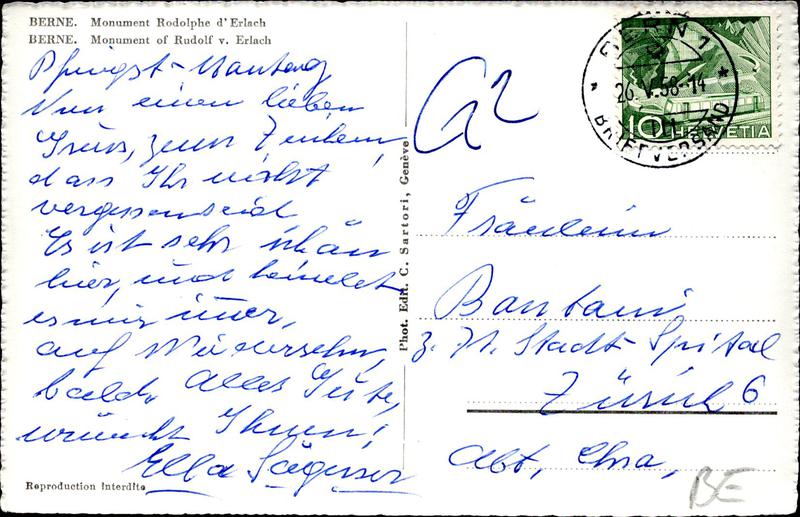 BERNE. Monument Rodolphe d'Erlach
BERNE. Monument of Rudolf v. Erlach
Pfingst-Montag
Nun einen lieben
Gruss, zum Zeichen,
dass Ihr nicht
vergessen seid
Es ist sehr schön
hier, und
es mir immer,
auf Wiedersehn,
bald. Alles Gute,
wünscht Ihnen,
Ella
Reproduction interdite
Phot. Edit. C. Sartori, Genève
BERN 1
26.V.58-14
BRIEFVERSAND
10 HELVETIA
Fräulein
z. Zt. Stadt-Spital
Zürich 6
Abt,
BE